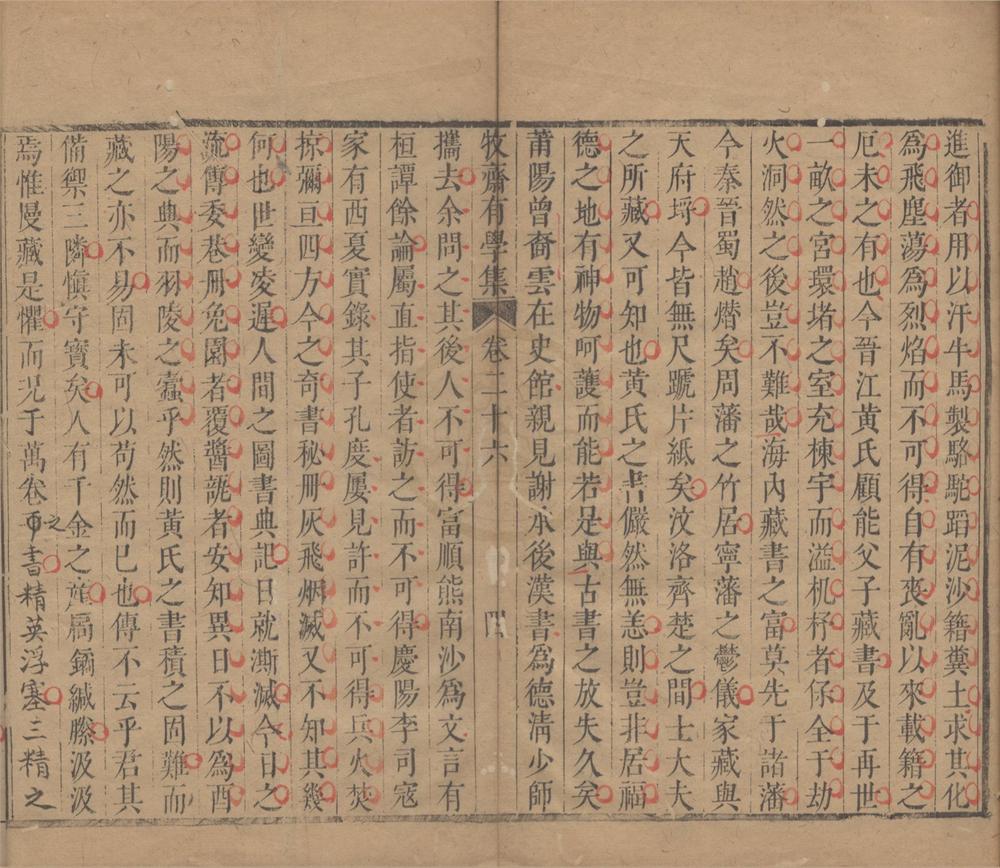 進御者用以汗牛馬製駱駝蹈泥沙籍糞土求其化
爲飛塵蕩爲烈焰而不可得自有喪亂以來載籍之
厄未之有也今晉江黃氏顧能父子藏書及于再世
一畝之宮環堵之室充棟宇而溢机杼者保全于劫
火洞然之後豈不難哉海內藏書之富莫先于諸藩
今秦晉蜀趙熸矣周藩之竹居寧藩之鬱儀家藏與
天府埒今皆無尺蹏片紙矣汶洛齊楚之間士大夫
之所藏又可知也黃氏之書儼然無恙則豈非居福
德之地有神物呵護而能若是與古書之放失久矣
莆陽曾裔雲在史館親見謝承後漢書爲德清少師
牧齋有學集 卷二十六 四
攜去余問之其後人不可得富順熊南沙爲文言有
桓譚餘論屬直指使者訪之而不可得慶陽李司寇
家有西夏實錄其子孔度屢見許而不可得兵火焚
掠彌亘四方今之奇書秘冊灰飛烟滅又不知其幾
何也世變凌遲人間之圖書典記日就澌滅今日之
流傳委巷冊兔園者覆醬瓿者安知異日不以爲酉
陽之典而羽陵之蠹乎然則黃氏之書積之固難而
藏之亦不易固未可以苟然而已也傳不云乎君其
備禦三隣慎守寶矣人有千金之產扃鐍緘縢汲汲
焉惟慢藏是懼而况于萬卷之書精英浮塞三精之